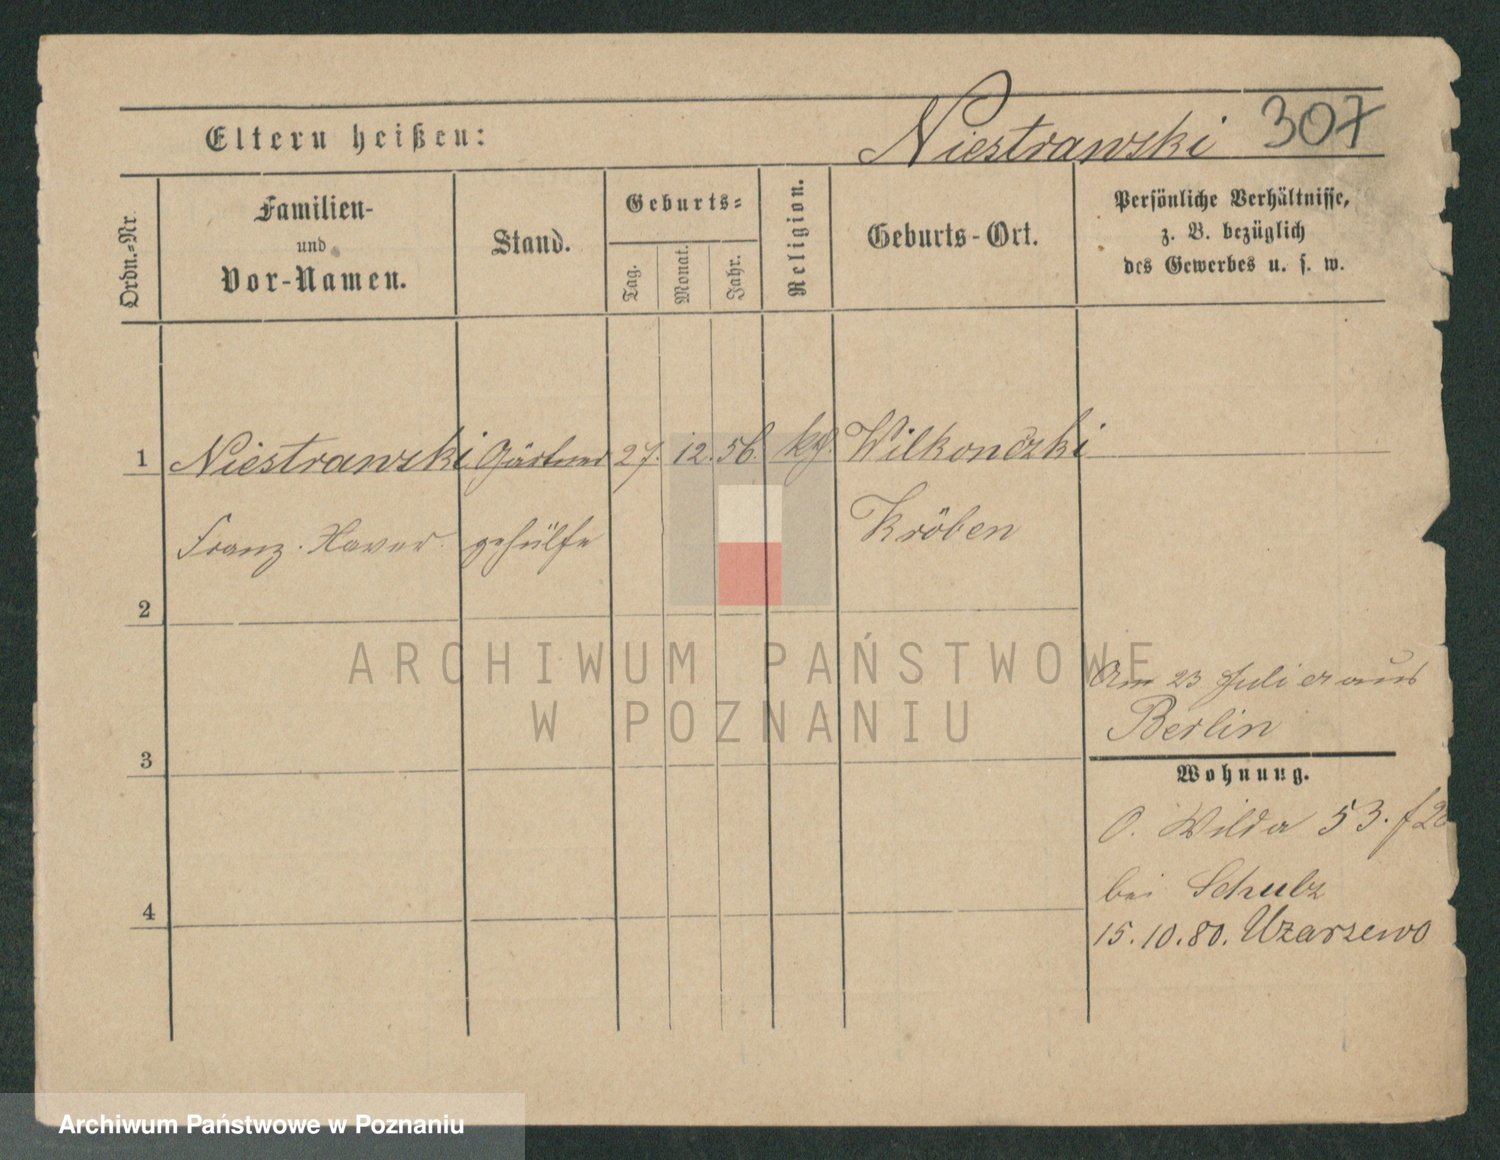 Niestrawski 307
Eltern heißen:
Ordn.-Nr.
Familien-
und
Vor-Namen.
Stand.
Geburts-
Tag.
Monat.
Jahr.
Religion.
Geburts-Ort.
Persönliche Verhältnisse,
z. B. bezüglich
des Gewerbes u. s. w.
1 Niestrawski Gärtner 27. 12. 56. kg. Wilkonczki
Franz. Xaver. gehülfe Kröben
2
ARCHIWUM PAŃSTWOWE
W POZNANIU
Am 23 Juli er aus
Berlin
3
Wohnung.
O. Wilda 53.
bei Schulz
4
15.10.80. Uzarzewo
Archiwum Państwowe w Poznaniu